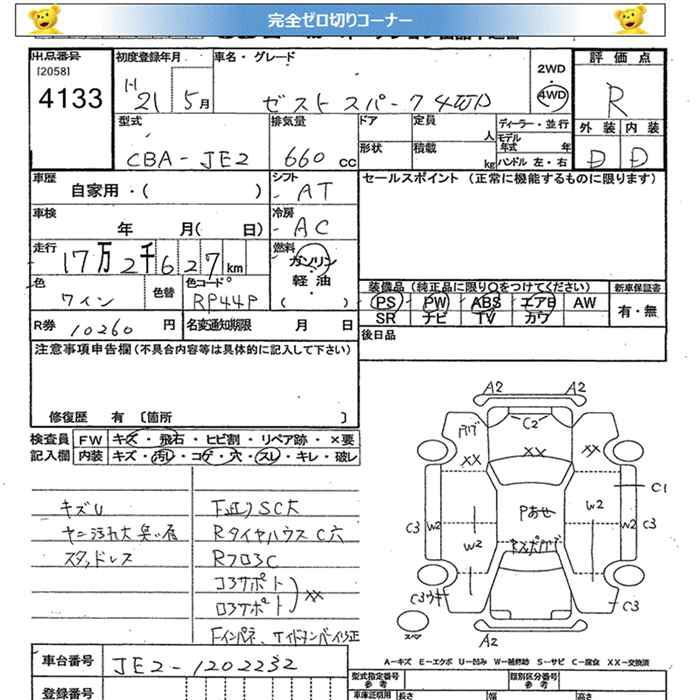 完全ゼロ切りコーナー
出品番号 初度登録年月 車名・グレード 2WD 評価点
[2058]
4133 H 21 5月 ゼスト スパーク 4WD 4WD R
型式 排気量 ドア 定員 人 ディーラー・並行 外装 内装
モデル年式 年
CBA-JE2 660 cc 形状 積載 kg ハンドル 左・右 D D
車歴 シフト セールスポイント (正常に機能するものに限ります)
自家用・( ) AT
車検 冷房
年 月( 日) AC
走行 燃料
17万2千627km ガソリン・軽油・( )
色 色替 色コード
ワイン RP44P
装備品 (純正品に限り○をつけてください) 新車保証書
PS PW ABS エアB AW 有・無
SR ナビ TV カワ
R券 10260 円 名変通知期限 月 日 後日品
注意事項申告欄 (不具合内容等は具体的に記入して下さい)
修復歴 有 〔箇所 〕
検査員 FW キズ・飛石・ヒビ割・リペア跡・×要
記入欄 内装 キズ・汚レ・コゲ・穴・スレ・キレ・破レ
キズU
ヤニ汚れ大 臭い有
スタッドレス
SC大
RタイヤハウスC穴
RフロアC
コアサポート
ロアサポート XX
A2 A2
C2
XX XX XX
C1
Pあせ
C3 W2 W2 W2 W2 C3
C3ウキ C3
スペア
A2
A-キズ E-エクボ U-凹み W-補修跡 S-サビ C-腐食 XX-交換済
車台番号 JE2-1202232
登録番号
型式指定番号 参考 類別区分番号 参考
車庫証明用 長さ 幅 高さ